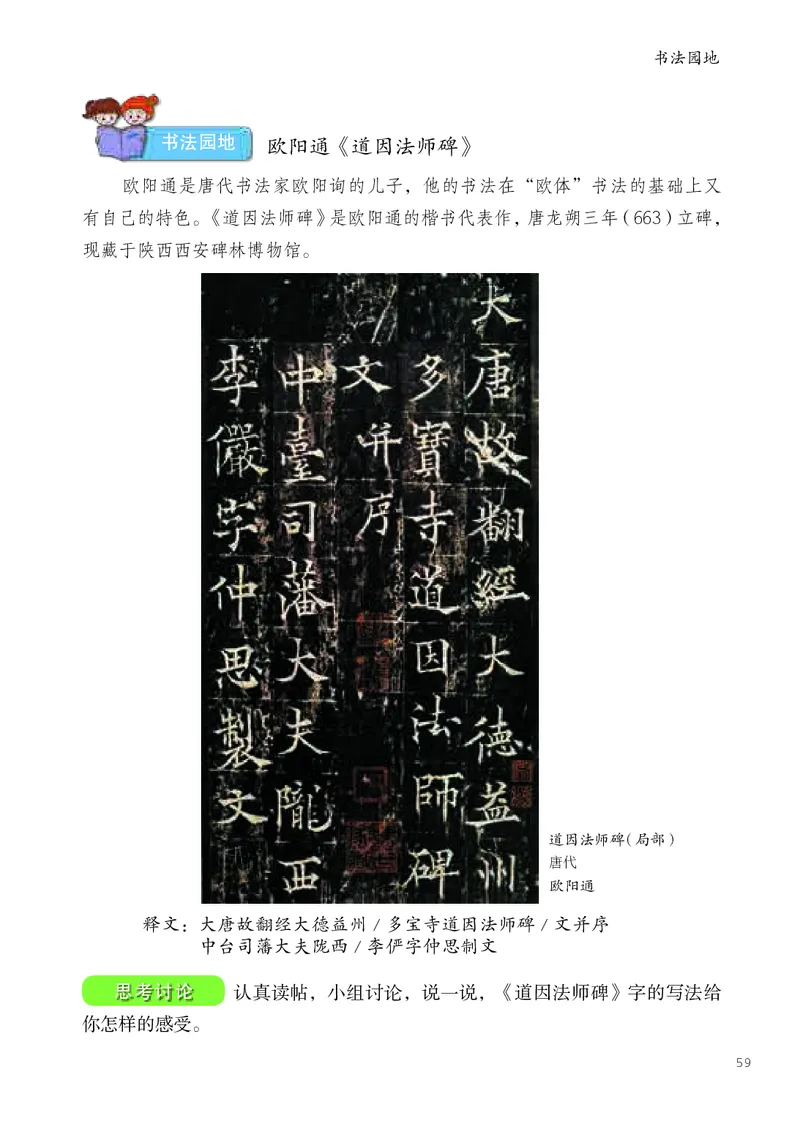 书法园地
书法园地
欧阳通《道因法师碑》
欧阳通是唐代书法家欧阳询的儿子，他的书法在“欧体”书法的基础上又
有自己的特色。《道因法师碑》是欧阳通的楷书代表作，唐龙朔三年（663）立碑，
现藏于陕西西安碑林博物馆。
大唐故翻經大德益州
多寶寺道因法師碑
文并序
中臺司藩大夫隴西
李儼字仲思製文
道因法师碑（局部）
唐代
欧阳通
释文：大唐故翻经大德益州 / 多宝寺道因法师碑 / 文并序
中台司藩大夫陇西 / 李俨字仲思制文
思考讨论 认真读帖，小组讨论，说一说，《道因法师碑》字的写法给
你怎样的感受。
59